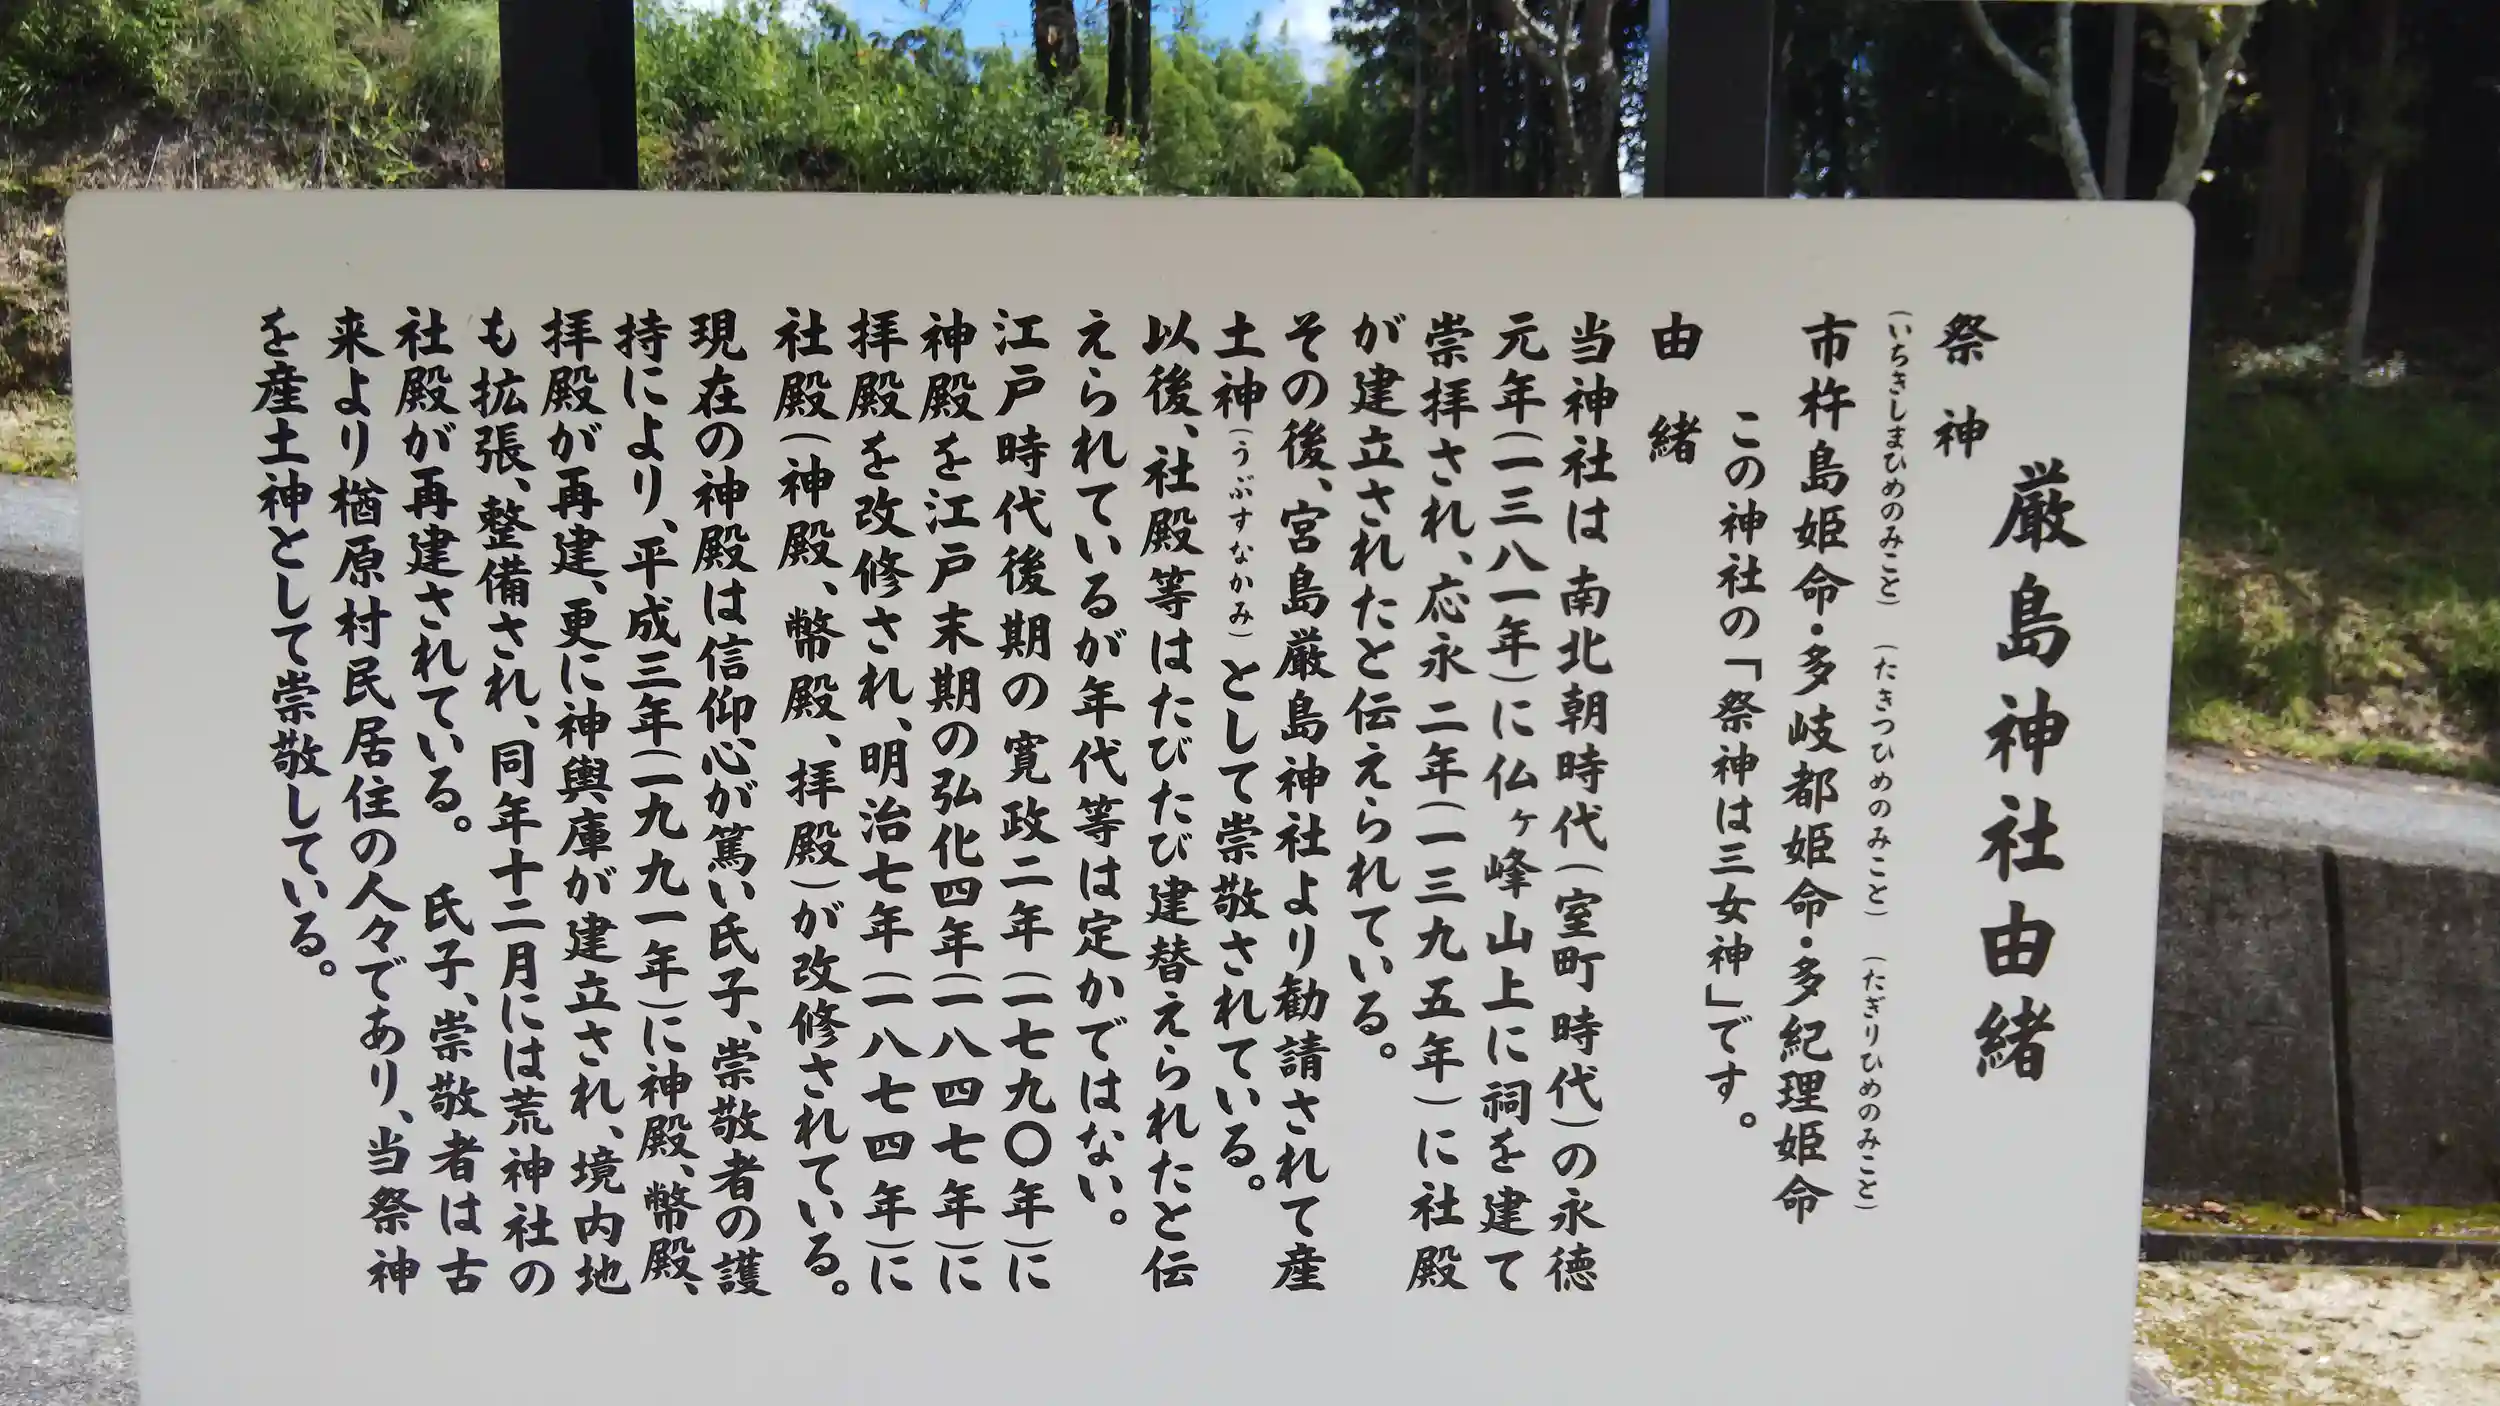 厳島神社由緒
祭神
(いちきしまひめのみこと) (たきつひめのみこと) (たぎりひめのみこと)
市杵島姫命・多岐都姫命・多紀理姫命
この神社の「祭神は三女神」です。
由緒
当神社は南北朝時代(室町時代)の永徳
元年(一三八一年)に仏ヶ峰山上に祠を建て
崇拝され、応永二年(一三九五年)に社殿
が建立されたと伝えられている。
その後、宮島厳島神社より勧請されて産
土神(うぶすなかみ)として崇敬されている。
以後、社殿等はたびたび建替えられたと伝
えられているが年代等は定かではない。
江戸時代後期の寛政二年(一七九〇年)に
神殿を江戸末期の弘化四年(一八四七年)に
拝殿を改修され、明治七年(一八七四年)に
社殿(神殿、幣殿、拝殿)が改修されている。
現在の神殿は信仰心が篤い氏子、崇敬者の護
持により、平成三年(一九九一年)に神殿、幣殿、
拝殿が再建、更に神輿庫が建立され、境内地
も拡張、整備され、同年十二月には荒神社の
社殿が再建されている。 氏子、崇敬者は古
来より楢原村民居住の人々であり、当祭神
を産土神として崇敬している。